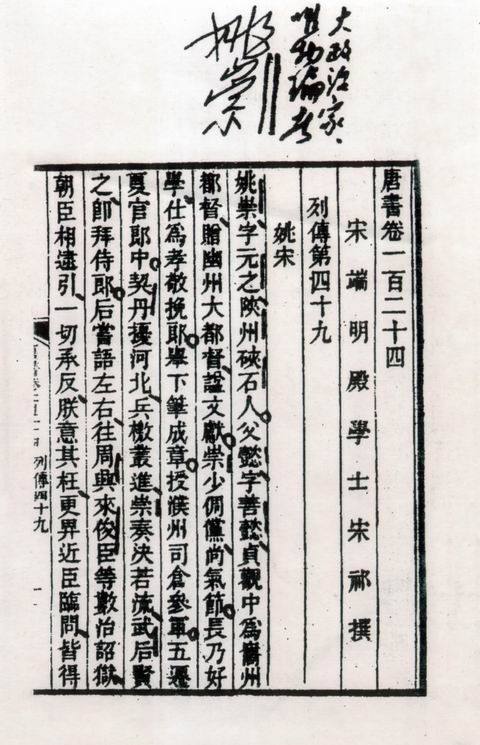 大政治家、
唯物論者
姚崇
唐書卷一百二十四
宋端明殿學士宋祁撰
列傳第四十九
姚宋
姚崇字元之陝州硤石人父懿字善懿貞觀中為巂州
都督贈幽州大都督諡文獻崇少倜儻尚氣節長乃好
學仕為孝敬挽郎舉下筆成章授濮州司倉參軍五遷
夏官郎中契丹擾河北兵檄叢進崇奏決若流武后賢
之即拜侍郎后嘗語左右往周興來俊臣等數治詔獄
朝臣相逮引一切承反朕意其枉更畀近臣臨問皆得
列傳四十九
一